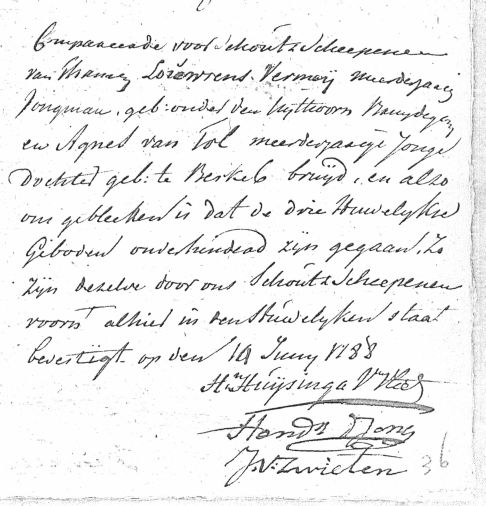 Compareerde voor Schout & Scheepenen
van Thamen Louwrens Vermeij meerderjarig
Jongman, geb: onder den Uythoorn Bruydegom
en Agnes van Tol meerderjaarige Jonge
Dochter geb: te Berkel bruijd, en alzo
ons gebleeken is dat de drie Huwelykse
Giboden onverhinderd zijn gegaan, Zo
zijn dezelve door ons Schout & Scheepenen
voornt alhier in den Huwelyken staat
bevestigt op den Juny 1788
Hn Huijsinga
Hendk D Jong
J. v: Zwieten 36